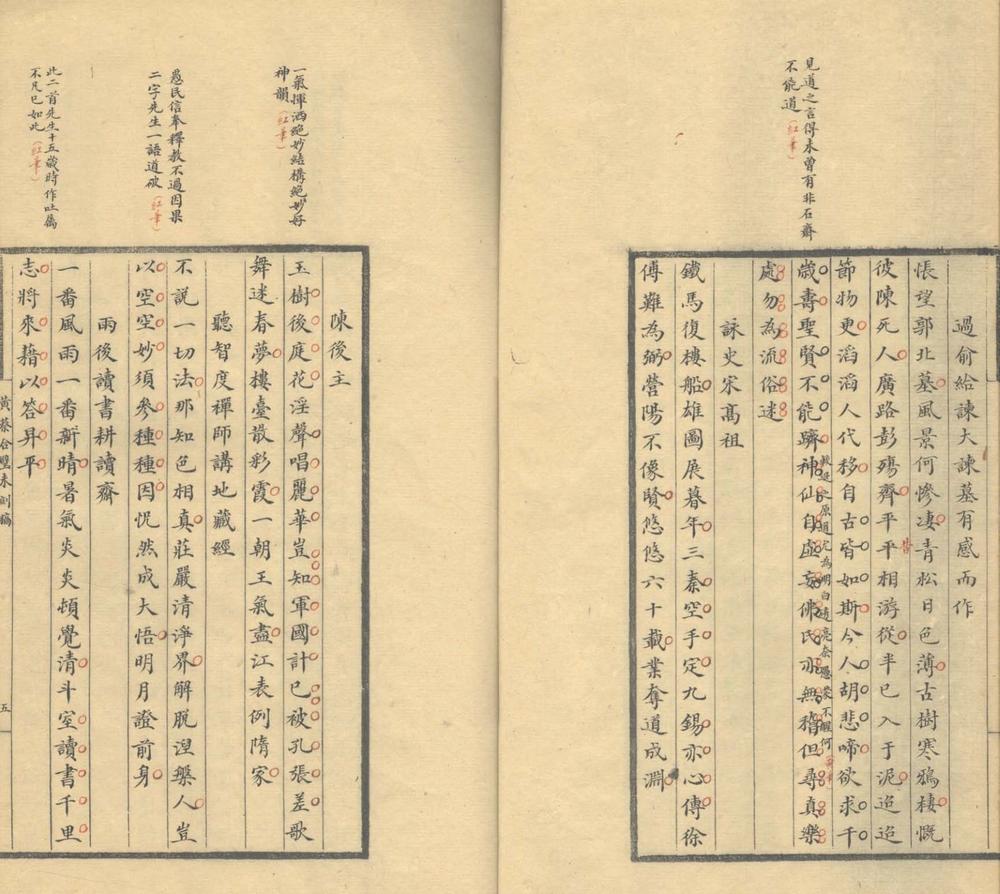 見道之言得未曾有非石齋
不能道（紅筆）
過俞給諫大諫墓有感而作
悵望郭北墓風景何慘凄青松日色薄古樹寒鴉棲慨
彼陳死人廣路彭殤齊平平相游從半已入于泥迢迢
昔
節物更滔滔人代移自古皆如斯今人胡悲啼欲求千
歲壽聖賢不能躋神仙自虛妄佛氏亦無稽但尋真樂
處勿為流俗迷
詠史宋髙祖
鐵馬復樓船雄圖展暮年三秦空手定九錫亦心傳徐
傅難為弼營陽不像賢悠悠六十載業奪道成淵
一氣揮洒絕妙結構絕妙好
神韻（紅筆）
愚民信奉釋教不過因果
二字先生一語道破（紅筆）
此二首先生十五歲時作吐屬
不凡已如此（紅筆）
陳後主
玉樹後庭花淫聲唱麗華豈知軍國計已被孔張差歌
舞迷春夢樓臺散彩霞一朝王氣盡江表例隋家
聽智度禪師講地藏經
不說一切法那知色相真莊嚴清淨界解脫涅槃人豈
以空空妙須參種種因怳然成大悟明月證前身
雨後讀書耕讀齋
一番風雨一番新晴暑氣炎炎頓覺清斗室讀書千里
志將來藉以答昇平
黃蔡合璧未刻稿
五